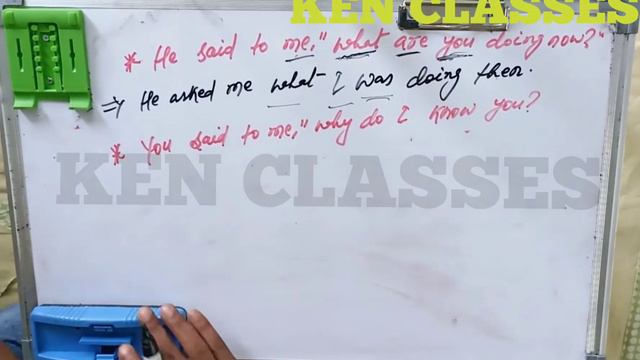 KEN CLASSES
* He said to me," what are you doing now?"
⇒ He asked me what I was doing then.
* You said to me," why do I know you?
KEN CLASSES